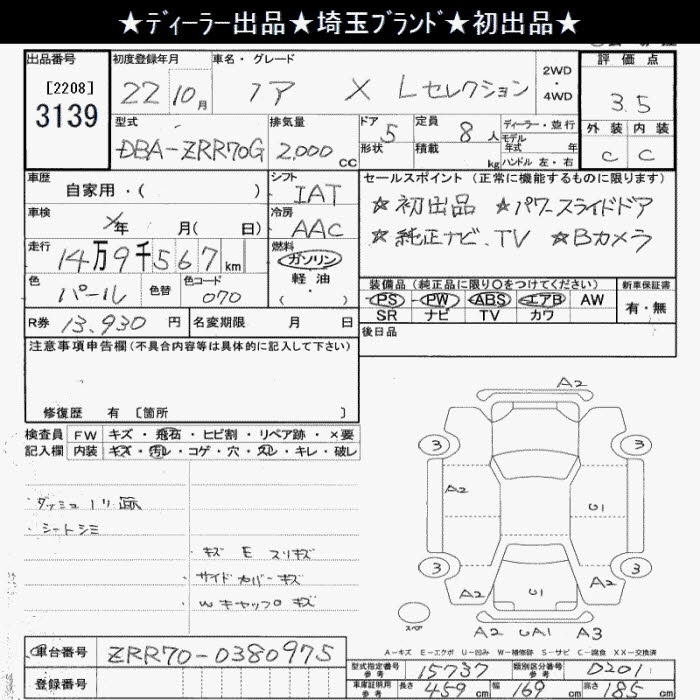 ★ディーラー出品★埼玉ブランド★初出品★
出品番号 初度登録年月 車名・グレード 2WD・4WD 評価点
[2208] 3139 22 10月 ノア X Lセレクション 3.5
型式 排気量 ドア 定員 ディーラー・並行 外装 内装
DBA-ZRR70G 2,000cc 5 8人 モデル年式 年 C C
形状 積載 kg ハンドル 左・右
車歴 シフト セールスポイント (正常に機能するものに限ります)
自家用・( ) IAT ★初出品 ★パワースライドドア
車検 年 月( 日) 冷房 AAC ★純正ナビ.TV ★Bカメラ
走行 14万9千567km 燃料 ガソリン
色 色替 色コード 軽油・( )
パール 070
装備品 (純正品に限り〇をつけてください) 新車保証書
PS PW ABS エアB AW 有・無
SR ナビ TV カワ
R券 13,930円 名変期限 月 日 後日品
注意事項申告欄(不具合内容等は具体的に記入して下さい)
修復歴 有 [箇所 ]
検査員 FW キズ・飛石・ヒビ割・リペア跡・×要
記入欄 内装 キズ・汚レ・コゲ・穴・スレ・キレ・破レ
A2
3 3
A2 U1
・シートシミ
・キズ E スリキズ
3 3
サイドカバーキズ
A2 U1 A2
Wキャップ0キズ
スペア
A2 UA1 A3
A-キズ E-エクボ U-凹み W-補修跡 S-サビ C-腐食 XX-交換済
車台番号 ZRR70-0380975
登録番号
型式指定番号 参考 15737 類別区分番号 参考 D201
車庫証明用 参考 長さ 459cm 幅 169cm 高さ 185cm